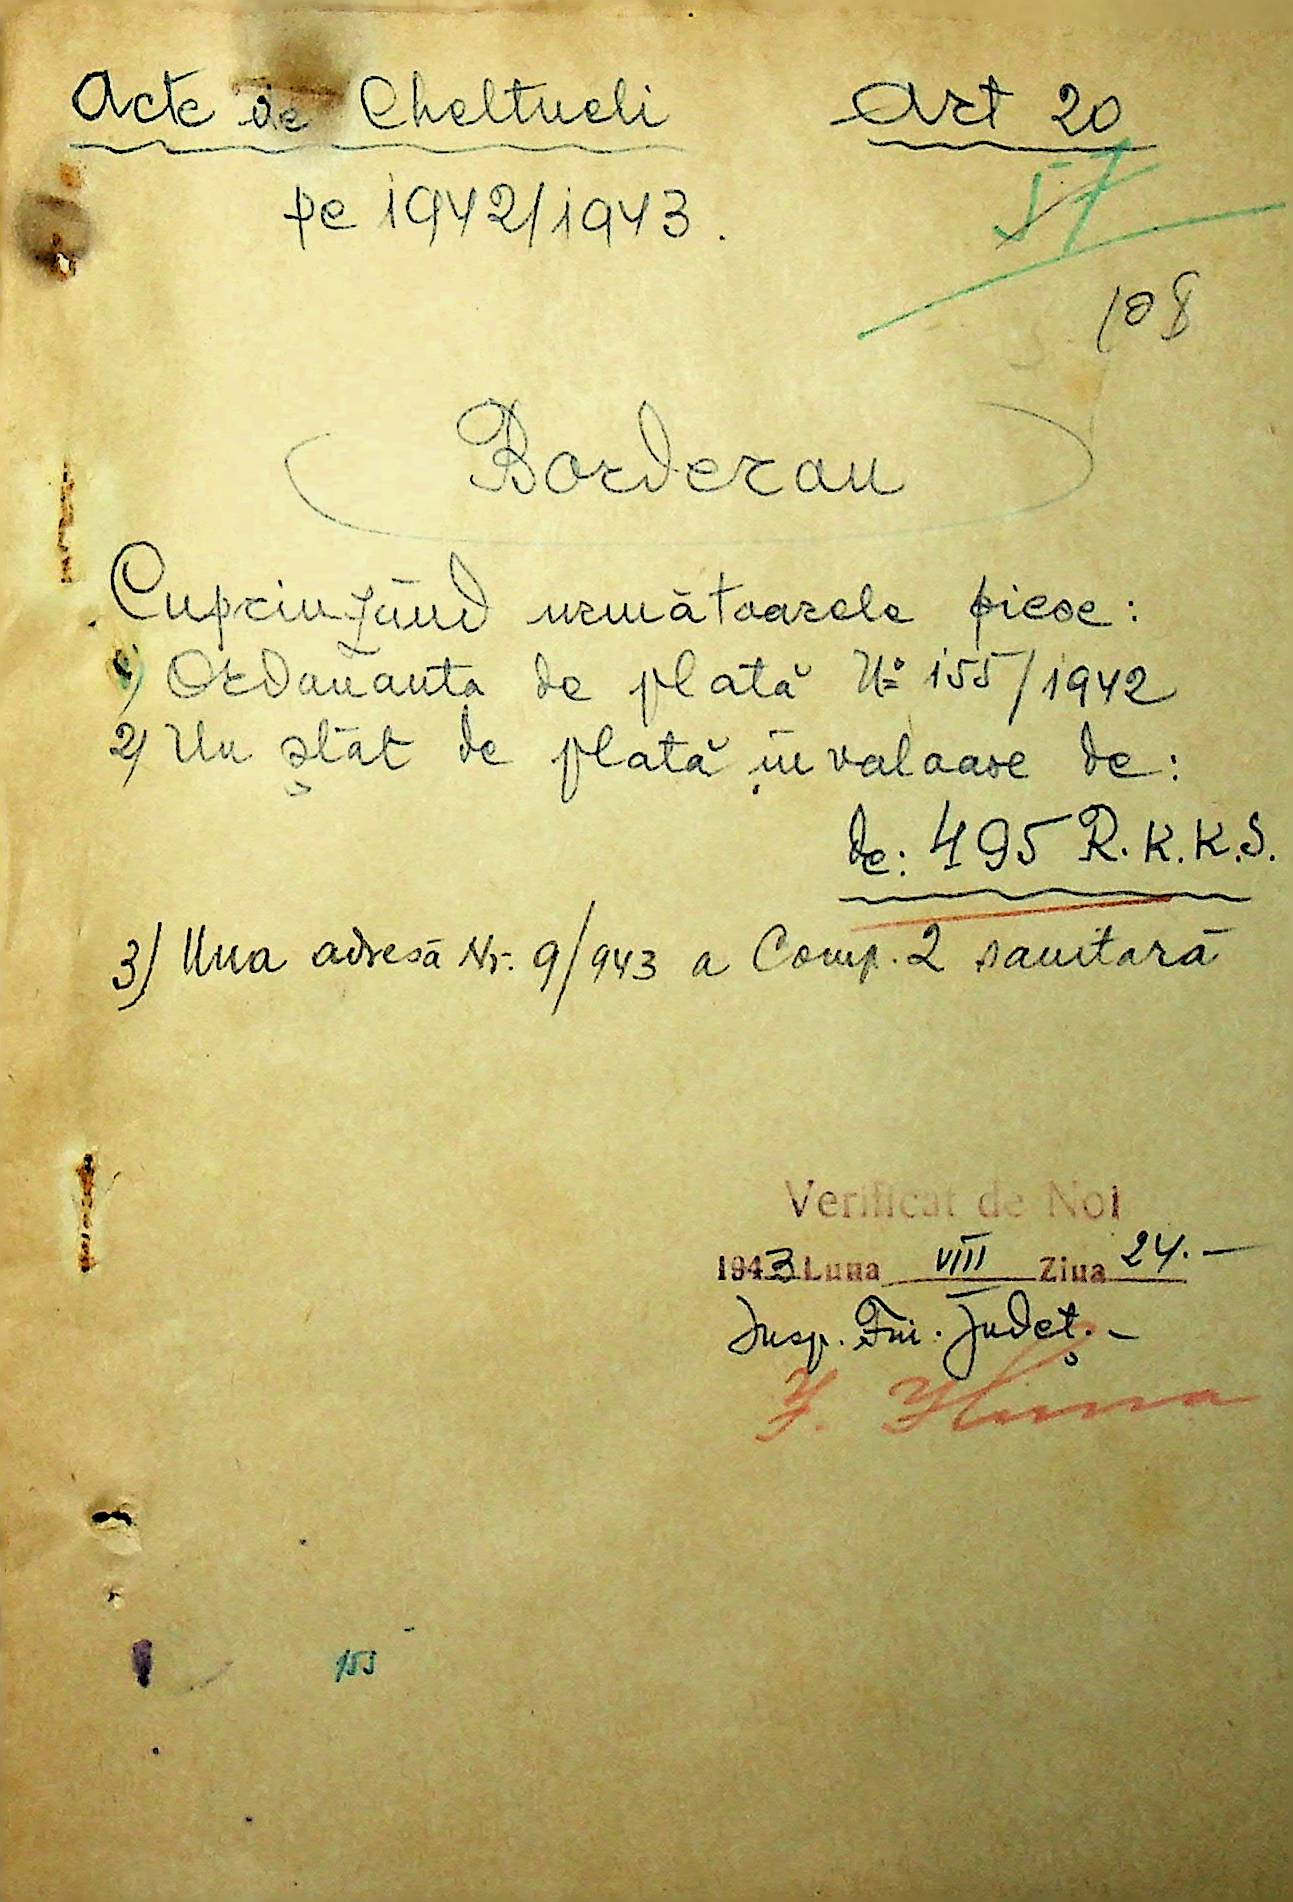 Acte de Cheltueli Art 20
pe 1942/1943.
57
108
Borderau
Cuprinzând următoarele piese:
1) Ordonanta de plată No 155/1942
2) Un ștat de plată în valoare de:
de: 495 R.K.K.S.
3) Una adresă Nr. 9/943 a Comp. 2 sanitară
Verificat de Noi
1943 Luna VIII Ziua 24.-
Insp. Fin. Județ.-
153